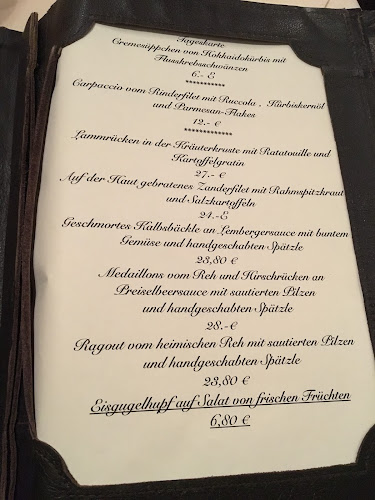 Tageskarte
Cremesüppchen von Hokkaidokürbis mit
Flusskrebsschwänzen
6.- E
***********
Carpaccio vom Rinderfilet mit Ruccola , Kürbiskernöl
und Parmesan-Flakes
12.- €
*************
Lammrücken in der Kräuterkruste mit Ratatouille und
Kartoffelgratin
27.- €
Auf der Haut gebratenes Zanderfilet mit Rahmspitzkraut
und Salzkartoffeln
24.-E
Geschmortes Kalbsbäckle an Lembergersauce mit buntem
Gemüse und handgeschabten Spätzle
23,80 €
Medaillons vom Reh und Hirschrücken an
Preiselbeersauce mit sautierten Pilzen
und handgeschabten Spätzle
28.- €
Ragout vom heimischen Reh mit sautierten Pilzen
und handgeschabten Spätzle
23,80 €
Eisgugelhupf auf Salat von frischen Früchten
6,80 €